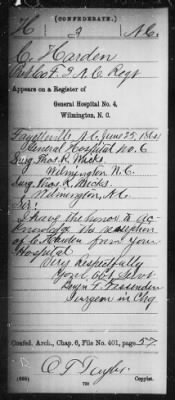 (CONFEDERATE.)
H 2 N.C.
C. Harden
Pvt Co F. 2 N.C. Regt
Appears on a Register of
General Hospital No. 4,
Wilmington, N. C.
Fayetteville N.C. June 25, 1864
General Hospital No. 6
Surg Thos. R. Micks.
Wilmington N.C.
Surg Thos. R. Micks.
Wilmington, N.C.
Sir:
I have the honor to ac-
knowledge the reception
of C. Harden from your
Hospital
Very Respectfully
Your Obt Servt.
Benj'n F. Fessenden
Surgeon in Chg
Confed. Arch., Chap. 6, File No. 401, page 57
Copyist.